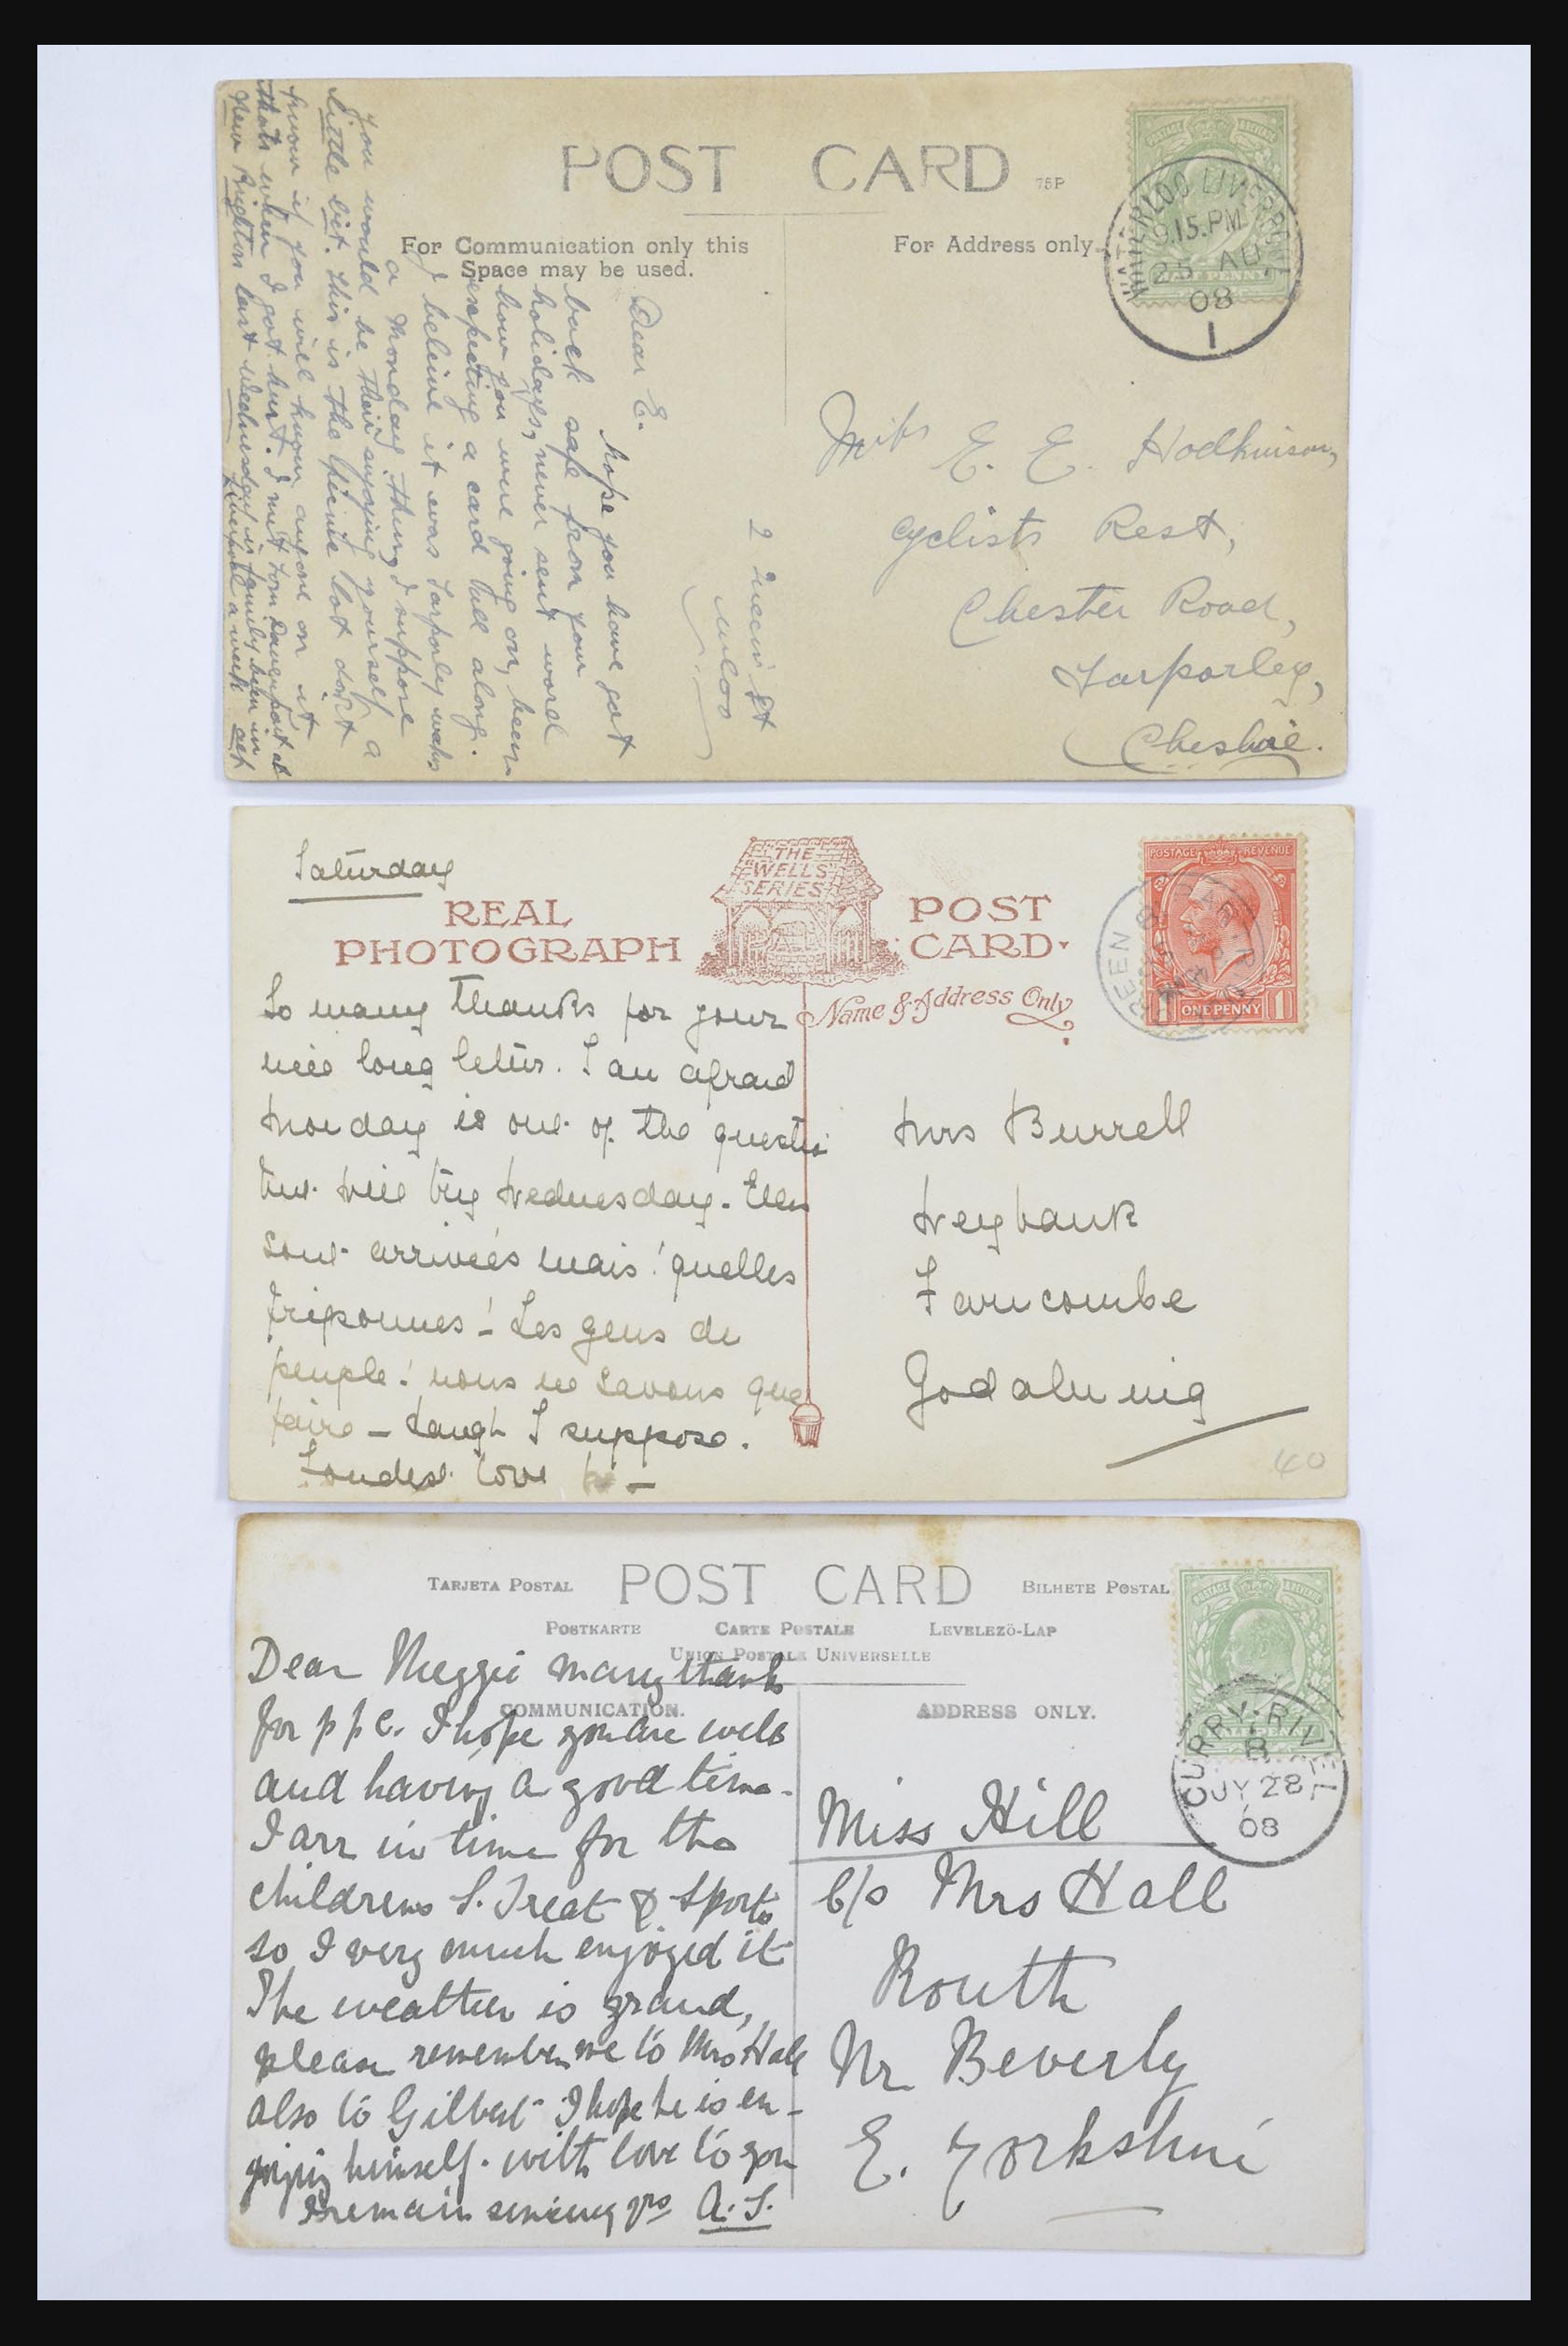 POST CARD 75P
For Communication only this
Space may be used.
For Address only
WATERLOO LIVERPOOL
9.15.PM
25 AU
08
1
2 Queen St
W'loo
Dear E.
hope you have got
back safe from your
holidays, never sent word
how you were going on, been
expecting a card all along.
I beleive it was Tarporley wakes
a Monday. thing I suppose
you would be their enjoying yourself a
little bit. this is the picnic lot don't
know if you will know anyone on it
thats when I got hurt. I met Tom Davenport at
New Brighton last Wednesday is family been in
Liverpool a week
Miss E. E. Hodkinson,
Cyclists Rest,
Chester Road,
Tarporley,
Cheshire.
Saturday
REAL
PHOTOGRAPH
THE
"WELLS"
SERIES
POST
CARD
Name & Address Only
POSTAGE REVENUE
1 ONE PENNY 1
GREEN
So many thanks for your
nice long letter. I am afraid
Monday is out of the questn
but will try Wednesday. Elles
sont arrivées mais! quelles
friponnes! Les gens de
peuple! nous ne savons que
faire — Laugh I suppose.
Fondest love
Mrs Burrell
Weybank
Farncombe
Godalming
40
TARJETA POSTAL POST CARD BILHETE POSTAL
POSTKARTE CARTE POSTALE LEVELEZÖ-LAP
UNION POSTALE UNIVERSELLE
COMMUNICATION.
ADDRESS ONLY.
CURRY-RIVEL
8
JY 28
08
Dear Meggie many thanks
for p p c. I hope you are well
and having a good time.
I arr in time for the
childrens S. Treat & Sports
so I very much enjoyed it
The weather is grand,
please remember me to Mrs Hall
also to Gilbert I hope he is en-
joying himself. with love to you
I remain sincerely yrs A. S.
Miss Hill
C/o Mrs Hall
Routh
Nr Beverly
E. Yorkshire